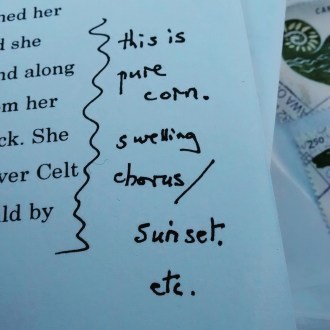 ned her
d she
nd along
om her
ck. She
ver Celt
ld by
this is
pure
corn.
swelling
chorus/
sunset.
etc.
CAN
250